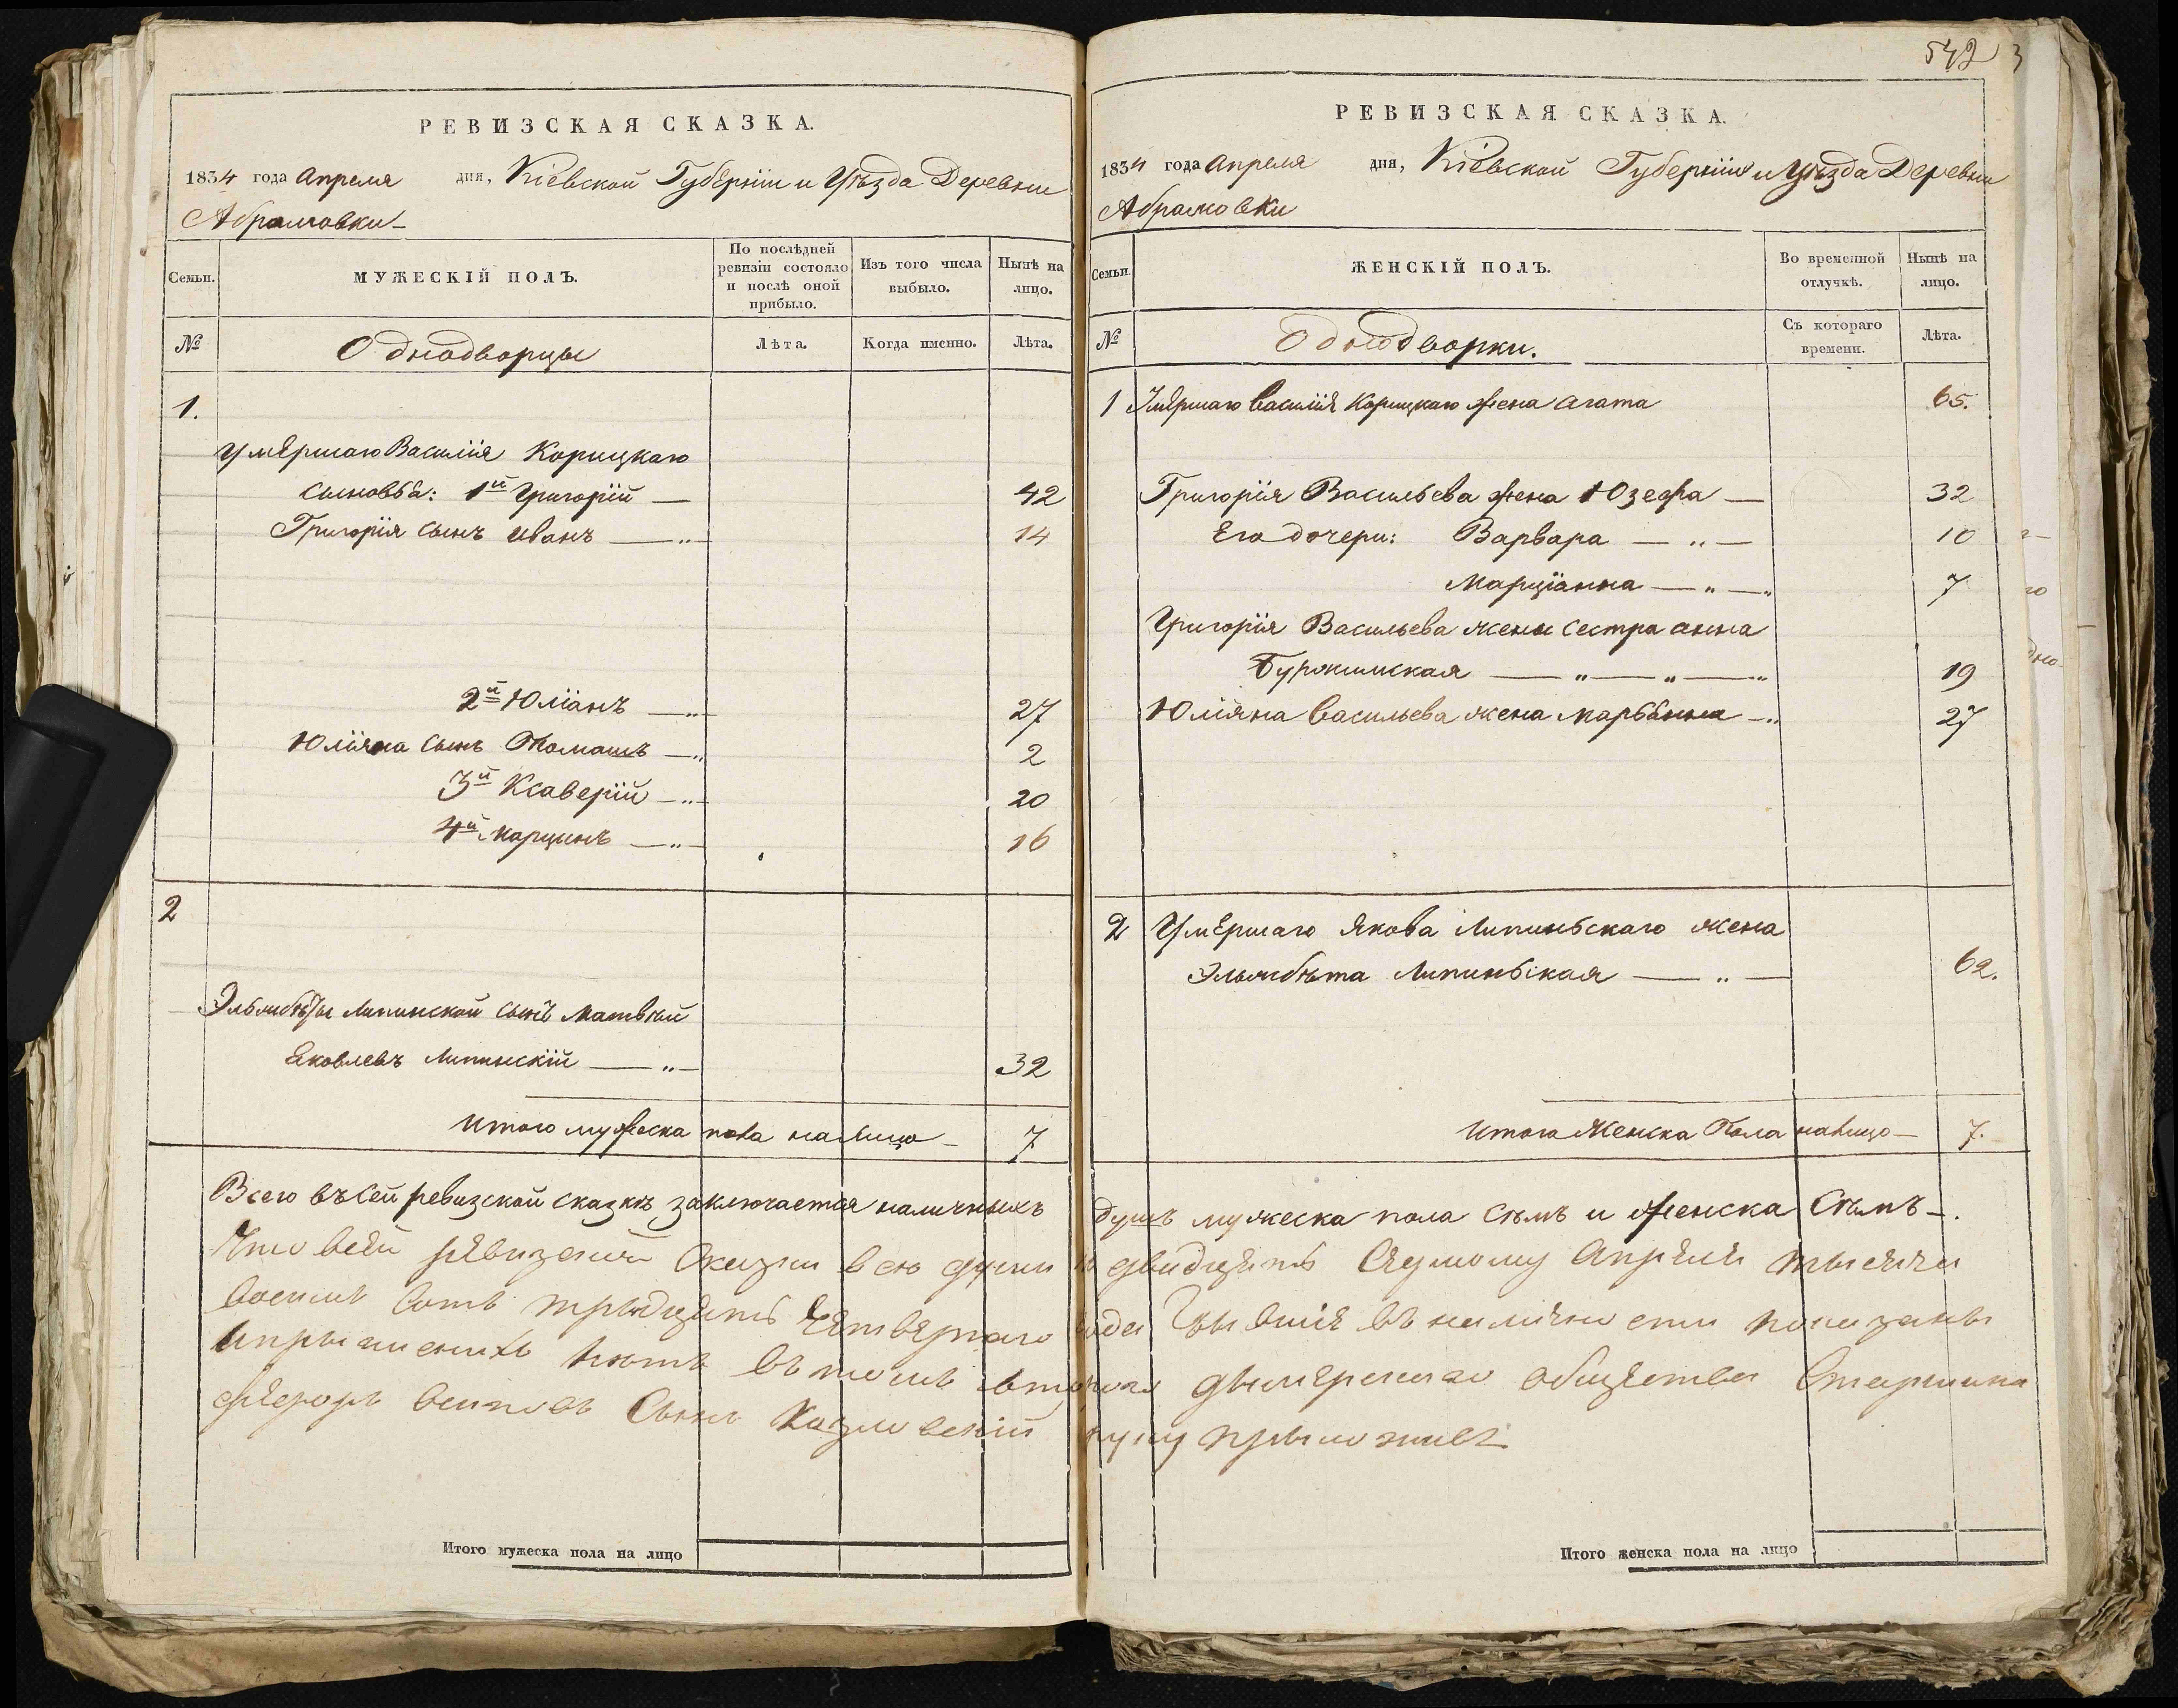 РЕВИЗСКАЯ СКАЗКА.
1834 года Апреля дня, Кіевской Губерніи и Уѣзда Деревни
Абрамовки
Семьи.
МУЖЕСКІЙ ПОЛЪ.
По послѣдней ревизіи состояло и послѣ оной прибыло.
Изъ того числа выбыло.
Нынѣ на лицо.
№
Однодворцы
Лѣта.
Когда именно.
Лѣта.
1.
Умершаго Василія Корицкаго
сыновья: 1й Григорій — 42
Григорія сынъ Иванъ — 14
2й Юліанъ — 27
Юліяна сынъ Томашъ — 2
3й Ксаверій — 20
4й Марцинъ — 16
2
Эльжбѣты Липинской сынъ Матвѣй
Яковлевъ Липинскій — 32
Итого мужеска пола на лицо — 7
Всего въ сей ревизской сказкѣ заключается наличныхъ
Итого мужеска пола на лицо
542
РЕВИЗСКАЯ СКАЗКА.
1834 года Апреля дня, Кіевской Губерніи и Уѣзда Деревни
Абрамовки
Семьи.
ЖЕНСКІЙ ПОЛЪ.
Во временной отлучкѣ.
Нынѣ на лицо.
№
Однодворки.
Съ котораго времени.
Лѣта.
1 Умершаго Василія Корицкаго жена Агата 65.
Григорія Васильева жена Юзефа — 32
Его дочери: Варвара — 10
Марціанна — 7
Григорія Васильева жены сестра Анна
— 19
Юліяна Васильева жена Марьянна — 27
2 Умершаго Якова Липиньскаго жена
Эльжбѣта Липиньская — 62.
Итого Женска Пола налицо — 7.
душъ мужеска пола сѣмъ и женска сѣмъ —.
двадцять Сядмому Апрѣля тысячи
восимъ сотъ тридцять Чятвяртаго года въ наличности показаны
нѣтъ въ томъ общества Старшина
сынъ Козловскій руку приложилъ
Итого женска пола на лицо